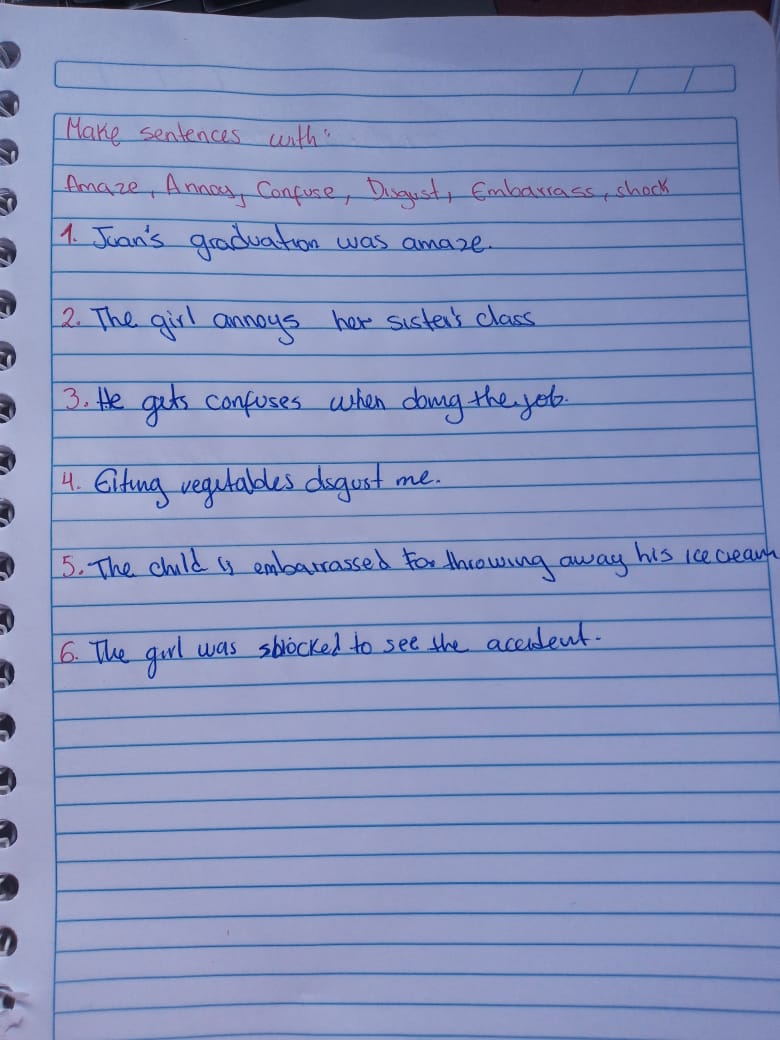 Make sentences with:
Amaze, Annoy, Confuse, Disgust, Embarrass, shock
1. Juan's graduation was amaze.
2. The girl annoys her sister's class
3. He gets confuses when doing the job.
4. Eiting vegetables disgust me.
5. The child is embarrassed for throwing away his ice cream
6. The girl was shocked to see the accident.